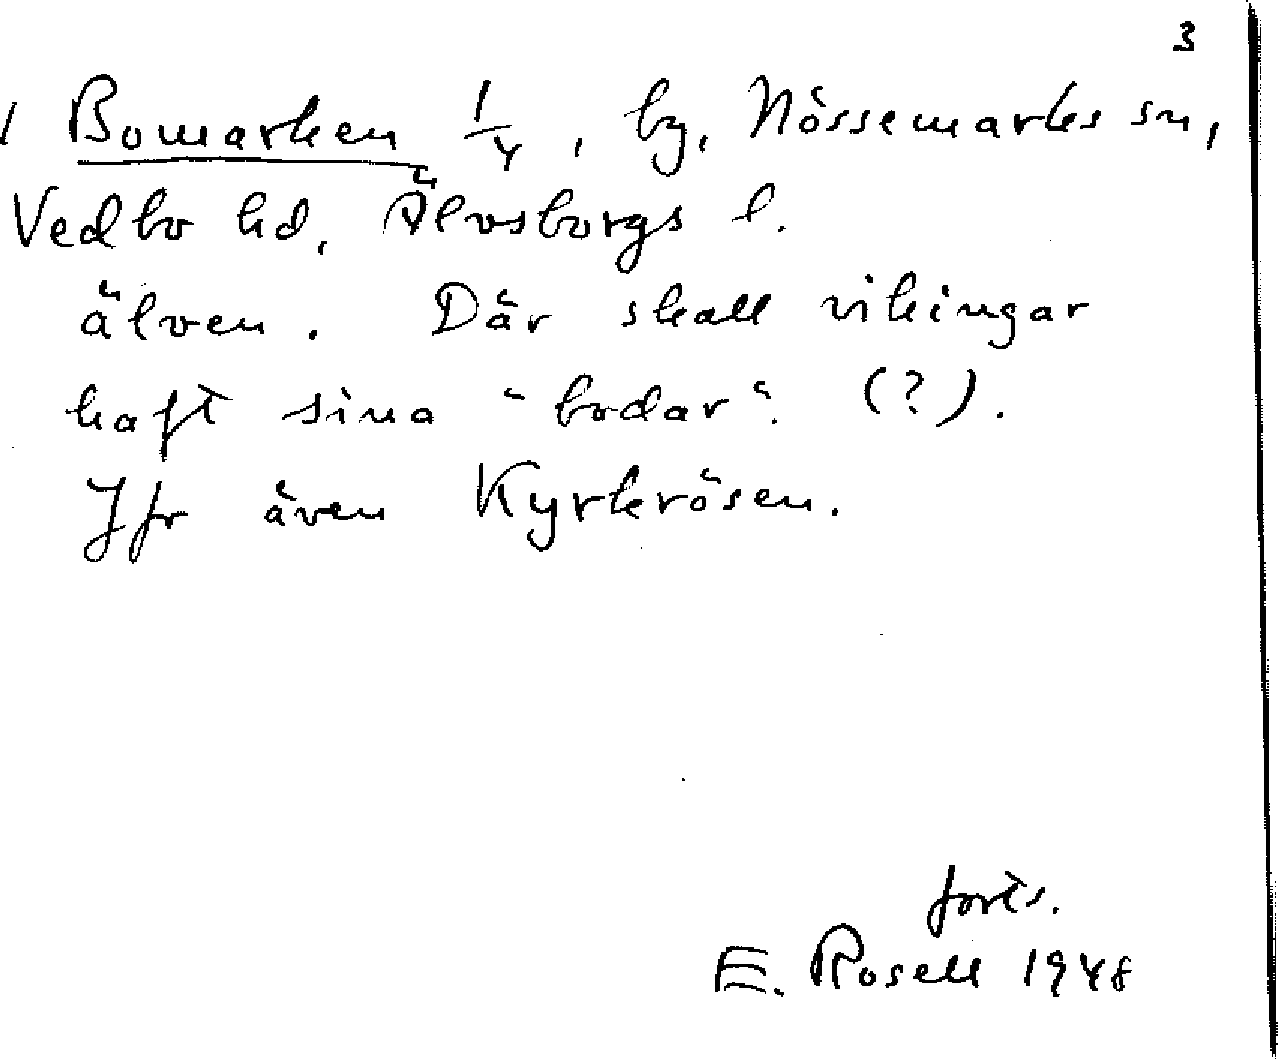 3
1 Bomarken 1/4, by, Nössemarks sn,
Vedbo hd, Älvsborgs l.
älven. Där skall vikingar
haft sina "bodar" (?).
Jfr även Kyrkrösen.
forts.
E. Rosell 1948